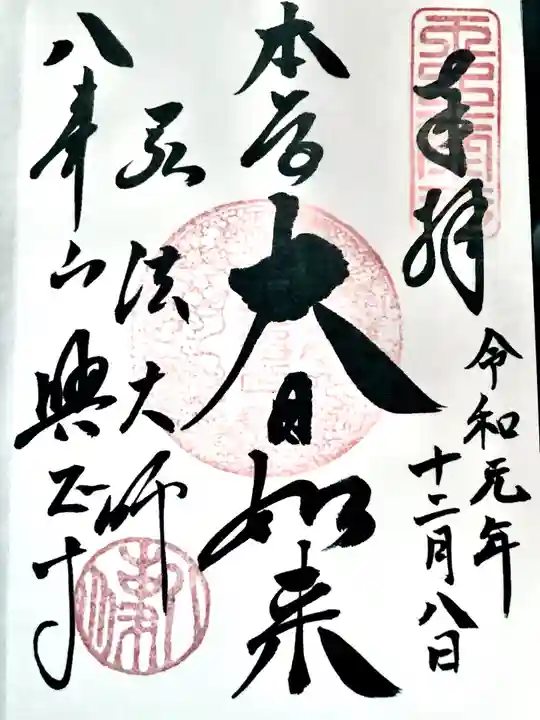 奉拝
令和元年
十二月八日
本尊
大日如来
弘法大師
八葉山興正寺